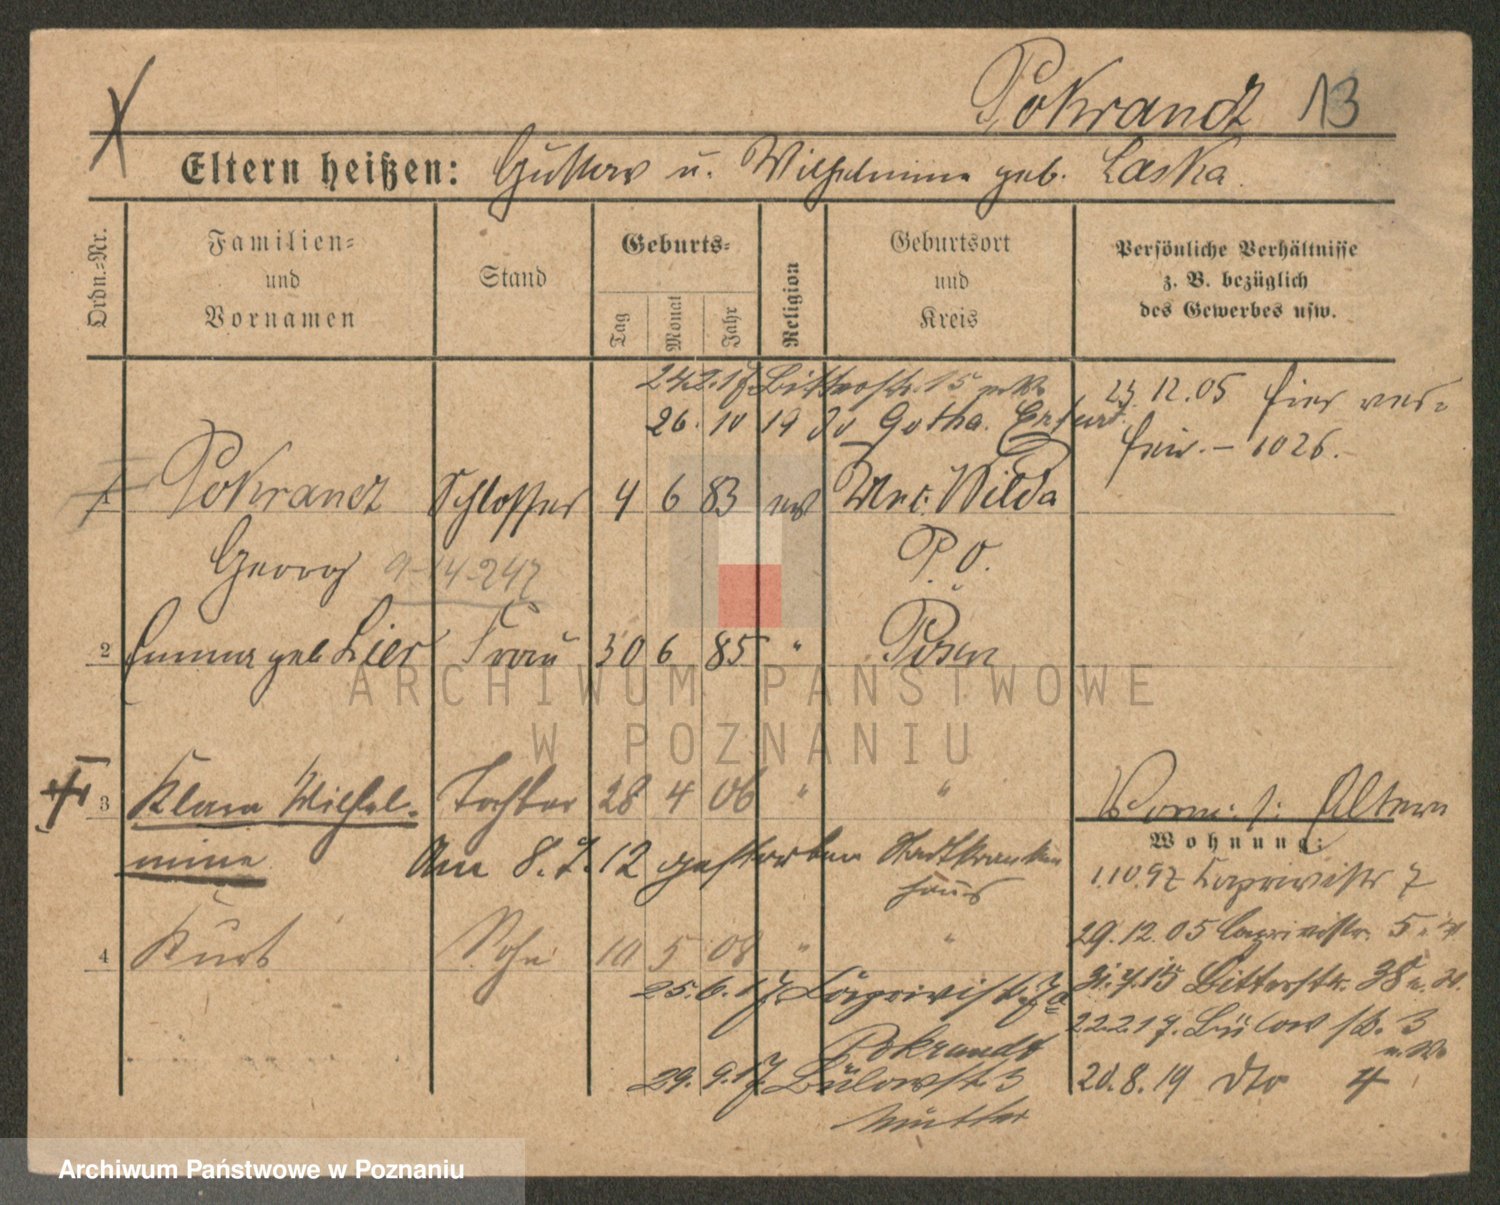 Pokrandt 13
Eltern heißen: Gustav u. Wilhelmine geb. Laska.
Ordn.-Nr.
Familien- und Vornamen
Stand
Geburts-
Tag Monat Jahr
Religion
Geburtsort und Kreis
Persönliche Verhältnisse z. B. bezüglich des Gewerbes usw.
24.2.17 Bitterstr. 15
26. 10 19 Gotha. Erfurt.
23.12.05 hier
1026.
1. Pokrandt Schlosser 4 6 83 ev Wilda
Georg 9-14-247 P. O.
2 Emma geb Lier Frau 30 6 85 " Posen
3 Klara Wilhel- Tochter 28 4 06 " "
mine Am 8.7.12 gestorben Stadtkranken
haus
4 Kurt Sohn 10 5 08 " "
25.6.17. Caprivistr. 7a
Pokrandt
29.9.17. Bülowstr 3
Mutter
Eltern
Wohnung:
1.10.97 Caprivistr 7
29.12.05 Caprivistr. 5
31.7.15 Bitterstr. 38
22.2.17. Bülowstr. 3
20.8.19 dto 4
ARCHIWUM PAŃSTWOWE
W POZNANIU
Archiwum Państwowe w Poznaniu